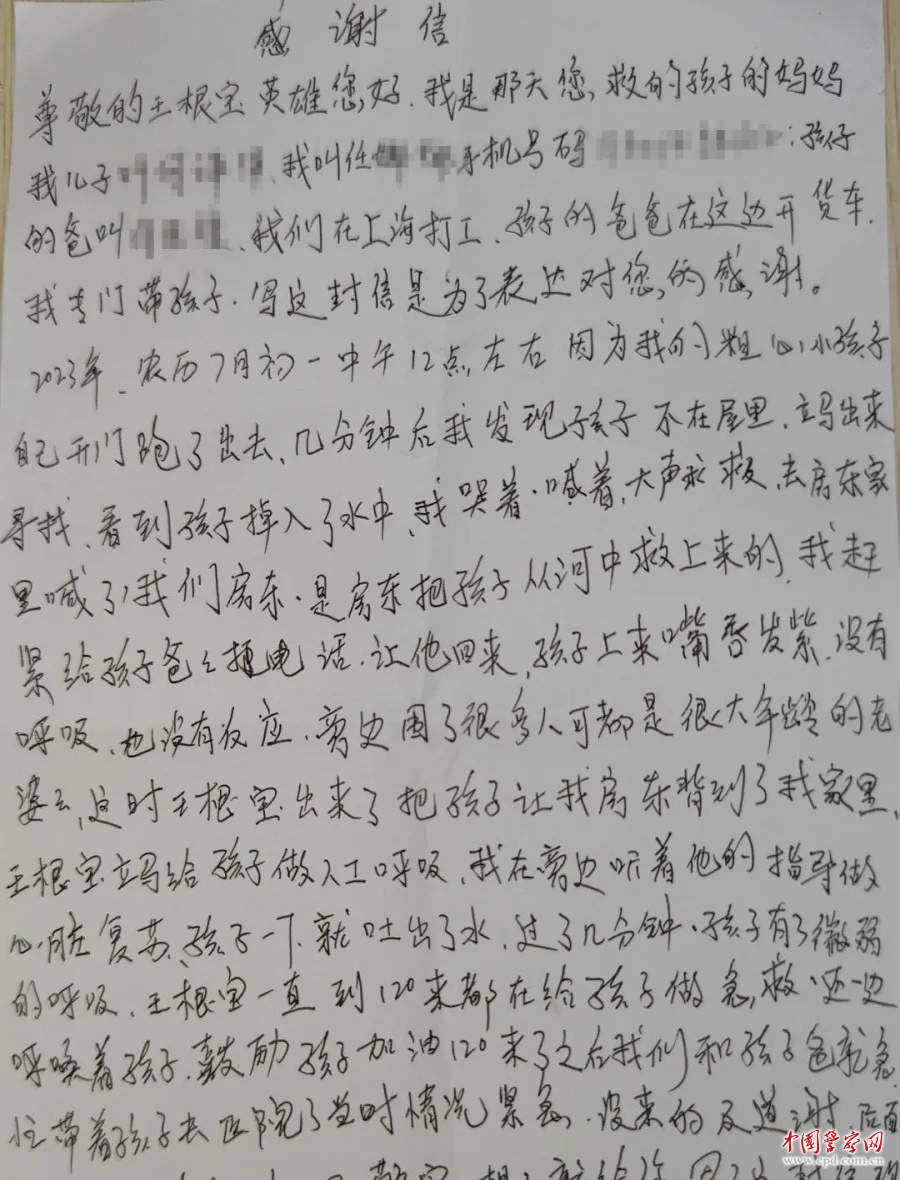 感谢信
尊敬的王根宝英雄您好.我是那天您救的孩子的妈妈
我儿子 我叫任 手机号码 孩子
的爸叫 、我们在上海打工、孩子的爸爸在这边开货车.
我专门带孩子.写这封信是为了表达对您的感谢。
2023年、农历7月初一中午12点左右因为我的粗心小孩子
自己开门跑了出去、几分钟后我发现孩子不在屋里、立马出来
寻找、看到孩子掉入了水中、我哭着、喊着,大声求救、去房东家
里喊了我们房东.是房东把孩子从河中救上来的、我赶
紧给孩子爸爸打电话.让他回来、孩子上来嘴唇发紫.没有
呼吸、也没有反应、旁边围了很多人可都是很大年龄的老
婆婆,这时王根宝出来了把孩子让我房东背到了我家里、
王根宝立马给孩子做人工呼吸、我在旁边听着他的指导做
心脏复苏、孩子一下就吐出了水、过了几分钟、孩子有了微弱
的呼吸、王根宝一直到120来都在给孩子做急救、还一边
呼唤着孩子.鼓励孩子加油120来了之后我们和孩子爸就急
忙带着孩子去医院了当时情况紧急、没来的及道谢、后面
中国警察网
www.cpd.com.cn